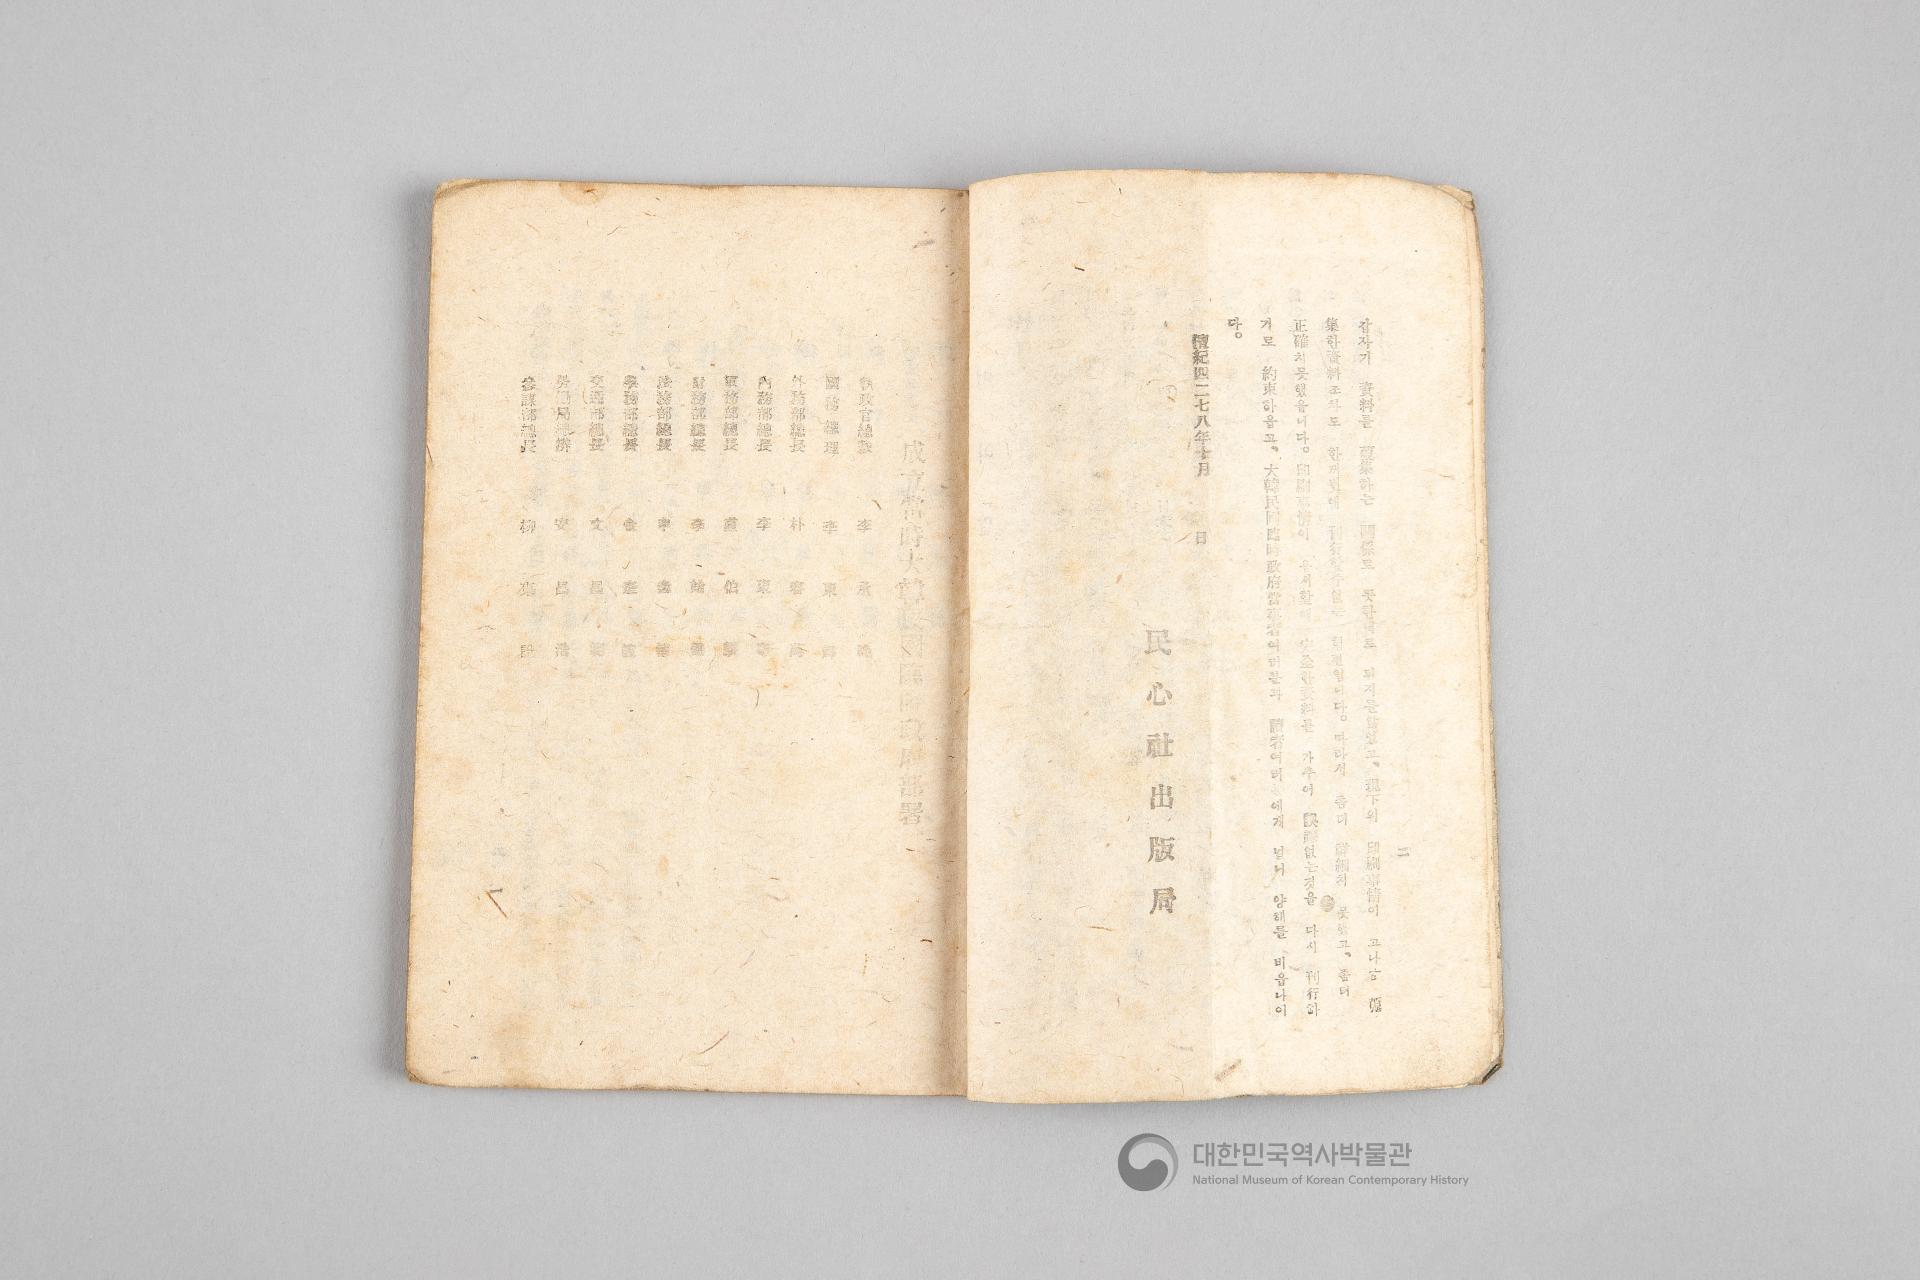 二
갑자기 資料를 蒐集하는 關係로 뜻한대로 되지를않었고、現下의 印刷事情이 고나음 蒐
集한資料조차도 한꺼번에 刊行할수없는 형편입니다。따라서 좀더 詳細치 못했고、좀더
正確치못했읍니다。印刷事情이 을 가추어 誤 없는것을 다시 刊行하
기로 約束하옵고、大韓民國臨時政府當事者여러분과 讀者여러 에게 널니 양해를 비옵나이
다。
檀紀四二七八年十月 日
民心社出版局
成立當時大韓民國臨時政府部署
執政官總裁 李承晩
國務總理 李東
外務部總長 朴容萬
內務部總長 李東寧
軍務部總長 盧伯麟
財務部總長 李始榮
法務部總長 申
學務部總長 金奎植
交通部總長 文昌範
勞働局總辦 安昌浩
參謀部總長 柳東說
一
대한민국역사박물관
National Museum of Korean Contemporary History